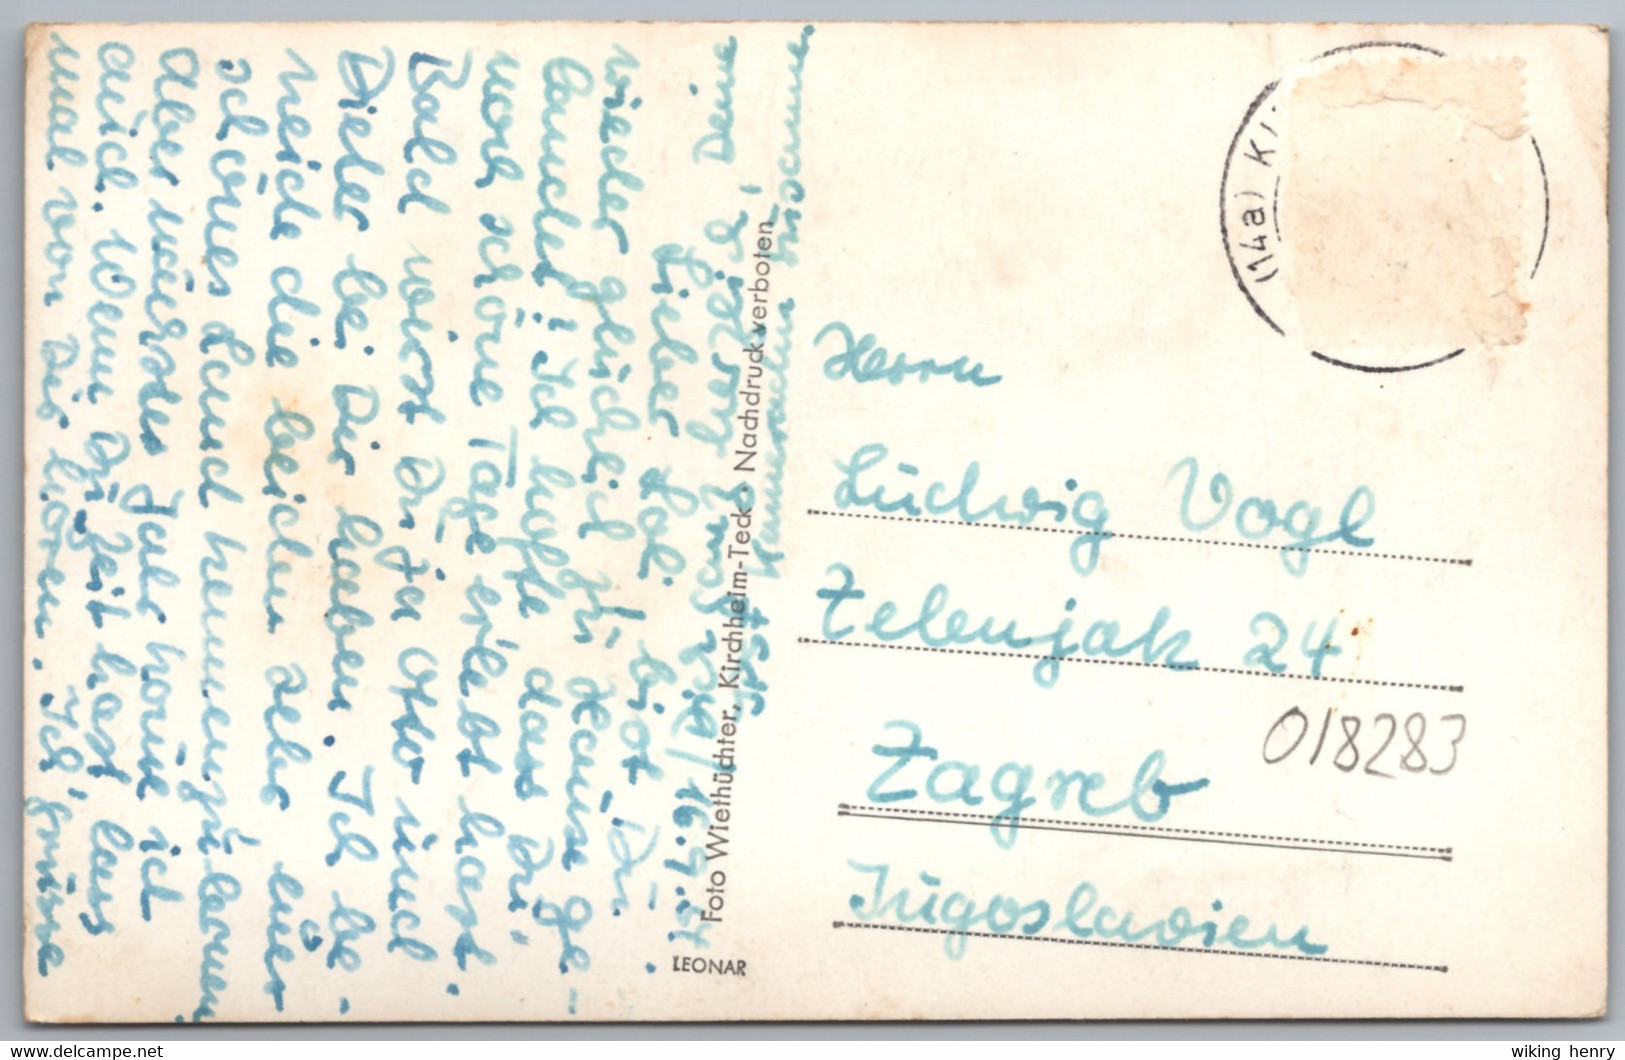 16.9.54
Lieber Loli bist Du
wieder glücklich zu Hause ge-
landet! Ich hoffe dass Du
noch schöne Tage erlebt hast.
Bald wirst Du ja Otto und
Dieter bei Dir haben. Ich be-
neide die beiden sehr euer
schönes Land kennenzulernen
Aber nächstes Jahr komme ich
auch. Wenn Du Zeit hast lass
mal von Dir hören. Ich grüsse
Deine
Foto Wiethüchter, Kirchheim-Teck · Nachdruck verboten
LEONAR
(14a) KI
Herrn
Ludwig Vogl
Zelenjak 24
Zagreb
Jugoslavien
018283
wiking_henry
www.delcampe.net